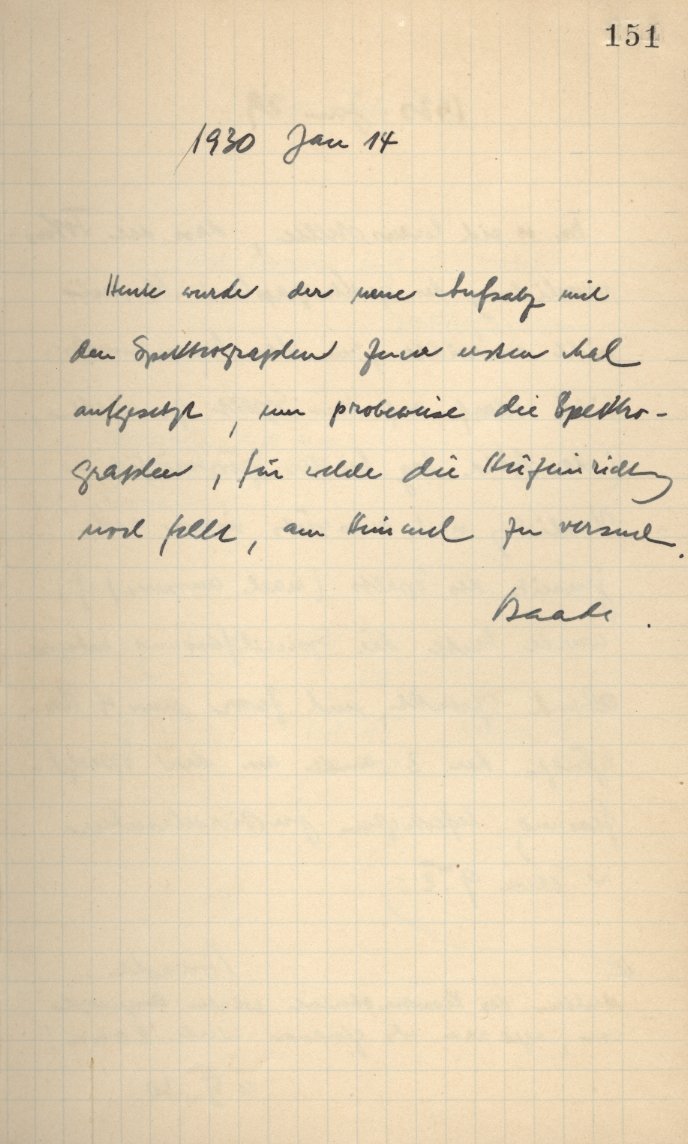 151
1930 Jan 14
Heute wurde der neue Aufsatz mit
den Spektrographen zum ersten Mal
aufgesetzt, um probeweise die Spektro-
graphen, für welche die Heizeinrichtung
noch fehlt, am Himmel zu versuchen.
Baade.